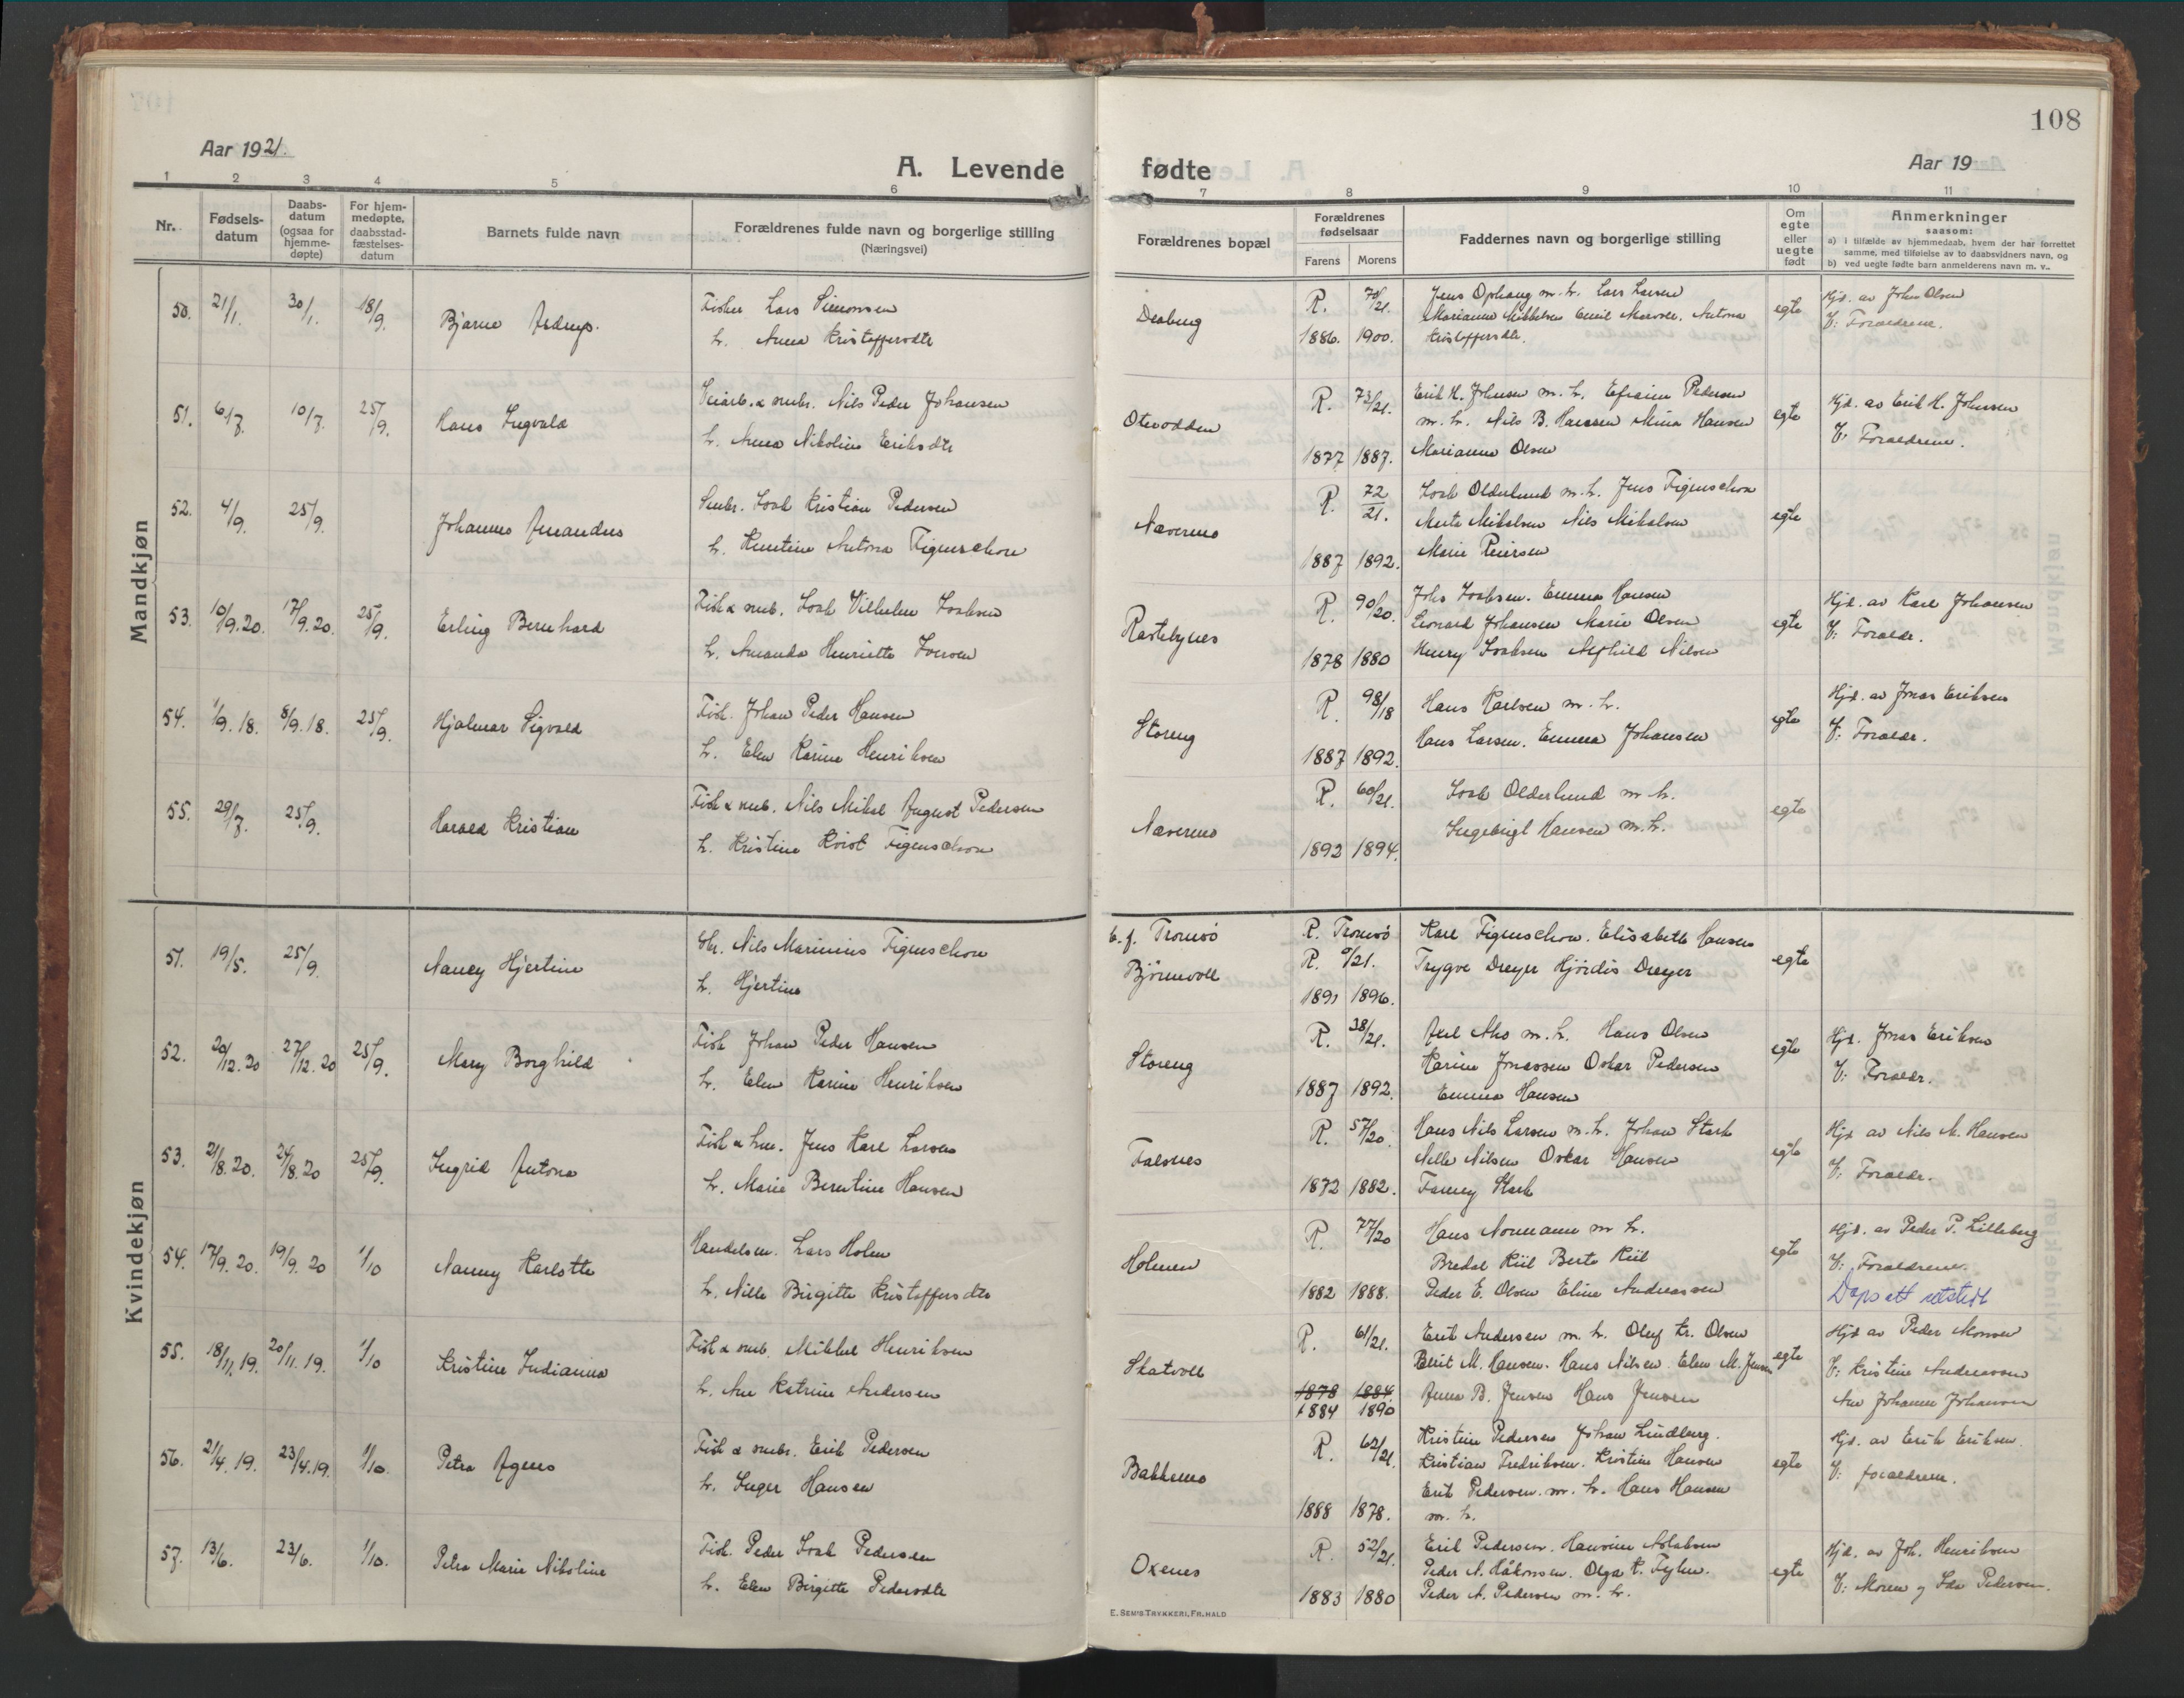 108
Aar 1921.
A. Levende fødte
Aar 19
1 2 3 4 5 6 7 8 9 10 11
Nr.
Fødsels-
datum
Daabs-
datum
(ogsaa for
hjemme-
døpte)
For hjem-
medøpte,
daabsstad-
fæstelses-
datum
Barnets fulde navn
Forældrenes fulde navn og borgerlige stilling
(Næringsvei)
Forældrenes bopæl
Forældrenes
fødselsaar
Farens Morens
Faddernes navn og borgerlige stilling
Om
egte
eller
uegte
født
Anmerkninger
saasom:
a) i tilfælde av hjemmedaab, hvem der har forrettet
samme, med tilføielse av to daabsvidners navn, og
b) ved uegte fødte barn anmelderens navn m. v..
Mandkjøn
50. 21/1. 30/1. 18/9. Bjarne
Fisker Lars Simonsen
h. Anna Kristoffersdtr
R. 70/21.
1886. 1900.
Jens Ophaug m. h. Lars Larsen
Marianne Mikkelsen Emil Antona
Kristoffersdtr.
egte
Hjd. av Johan Olsen
V: Forældrene.
51. 6/7 10/7. 25/9. Hans Ingvald
Nils Peder Johansen
h. Anna Nikoline Eriksdtr
Oterodden
R. 73/21.
1877 1887.
Erik H. Johnsen m. h. Efraim Pedersen
m. h. Nils B. Hansen Mina Hansen
Marianne Olsen
egte
Hjd. av Erik H. Johnsen
V: Forældrene.
52. 4/9. 25/9. Johannes Amandus
Smbr. Isak Kristian Pedersen
h. Antona Figenschou
Naverens
R. 72/21.
1887 1892.
Isak Olderlund m. h. Jens Figenschou
Merte Mikalsen Nils Mikalsen
Marie Reiersen
egte
53. 10/9.20. 17/9.20. 25/9. Erling Bernhard
Fisk & smb. Isak Vilhelm Isaksen
h. Amanda Henriette Iversen
Rastebynes
R. 90/20.
1878 1880
Johs Isaksen. Emma Hansen
Leonard Johansen Marie Olsen
Henry Isaksen Alfhild Nilsen
egte
Hjd. av Karl Johansen
V: Forældr.
54. 1/9.18. 8/9.18. 25/9. Hjalmar Sigvald
Fisk. Johan Peder Hansen
h. Elen Karine Henriksen
Storeng
R 98/18
1887 1892.
Hans Karlsen m. h.
Hans Larsen. Emma Johansen
egte
Hjd. av Jonas Eriksen
V: Forældr.
55. 29/7. 25/9. Harald Kristian
Fisk & smb. Nils Mikal August Pedersen
h. Kristine Figenschou
Naverens
R. 60/21.
1892 1894.
Isak Olderlund m h.
Ingebrigt Hansen m. h.
egte
Kvindekjøn
51. 19/5. 25/9. Nancy Hjertine
Nils Marinius Figenschou
h. Hjertine
b. f. Tromsö
Björnevoll
R. Tromsö
R. 9/21.
1891 1896.
Karl Figenschou. Elisabeth Hansen
Trygve Dreyer Hjördis Dreyer
egte
52. 20/12.20 27/12.20 25/9. Mary Borghild
Fisk Johan Peder Hansen
h. Elen Karine Henriksen
Storeng
R. 38/21.
1887 1892.
m. h. Hans Olsen
Karine Jonassen Oskar Pedersen
Emma Hansen
egte
Hjd. Jonas Eriksen
V: Forældr.
53. 21/8.20. 24/8.20 25/9. Ingrid Antona
Jens Karl Larsen
h. Marie Berntine Hansen
Falsnes
R. 57/20.
1872 1882.
Hans Nils Larsen m. h. Johan Stark
Nelle Nilsen Oskar Hansen
Fanny Stark
egte
Hjd av Nils M. Hansen
V: Forældr.
54. 17/9.20. 19/9.20 1/10 Nanny Karlotte
Handelsm. Lars Holm
h. Nille Birgitte Kristoffersdtr
Holmen
R. 77/20
1882 1888.
Hans Normann m h.
Bredal Kiil Berte Kiil
Peder E. Olsen Eline Andreassen
egte
Hjd. av Peder P. Lilleberg
V: Forældrene.
Dapsatt utstedt
55. 18/11.19. 20/11.19. 1/10 Kristine Indianna
Fisk & smb. Mikkel Henriksen
h. Ane Katrine Andersen
Skatvoll
R. 61/21.
1878 1884.
1884 1890
Erik Andersen m. h. Oluf Kr. Olsen
Berit M. Hansen. Hans Nilsen. Elen M. Jensen
Anna B. Jensen Hans Jensen
egte
Hjd av Peder Monsen
V: Kristine Andreassen
Ane Johanne Johansen
56. 21/4.19. 23/4.19. 1/10. Petra Agnes
Fisk & smbr. Erik Pedersen
h. Inger Hansen
Bakkemo
R. 62/21.
1888 1878.
Kristine Pedersen Johan Lindberg.
Kristian Fredriksen. Kristine Hansen
Erik Pedersen. m. h. Hans Hansen
m. h.
egte
Hjd. av Erik Eriksen.
V: forældrene.
57. 13/6. 23/6. 1/10. Petra Marie Nikoline
Fisk. Peder Isak Pedersen
h. Elen Birgitte Pedersdtr
Oxenes
R. 52/21.
1883 1880
Erik Pedersen. Hansine Aslaksen
Peder A. Håkonsen. Olga K.
Peder A. Pedersen m. h.
egte
Hjd. av Joh. Henriksen
V: Moren og Ida Pedersen.
E. SEM'S TRYKKERI, FR.HALD